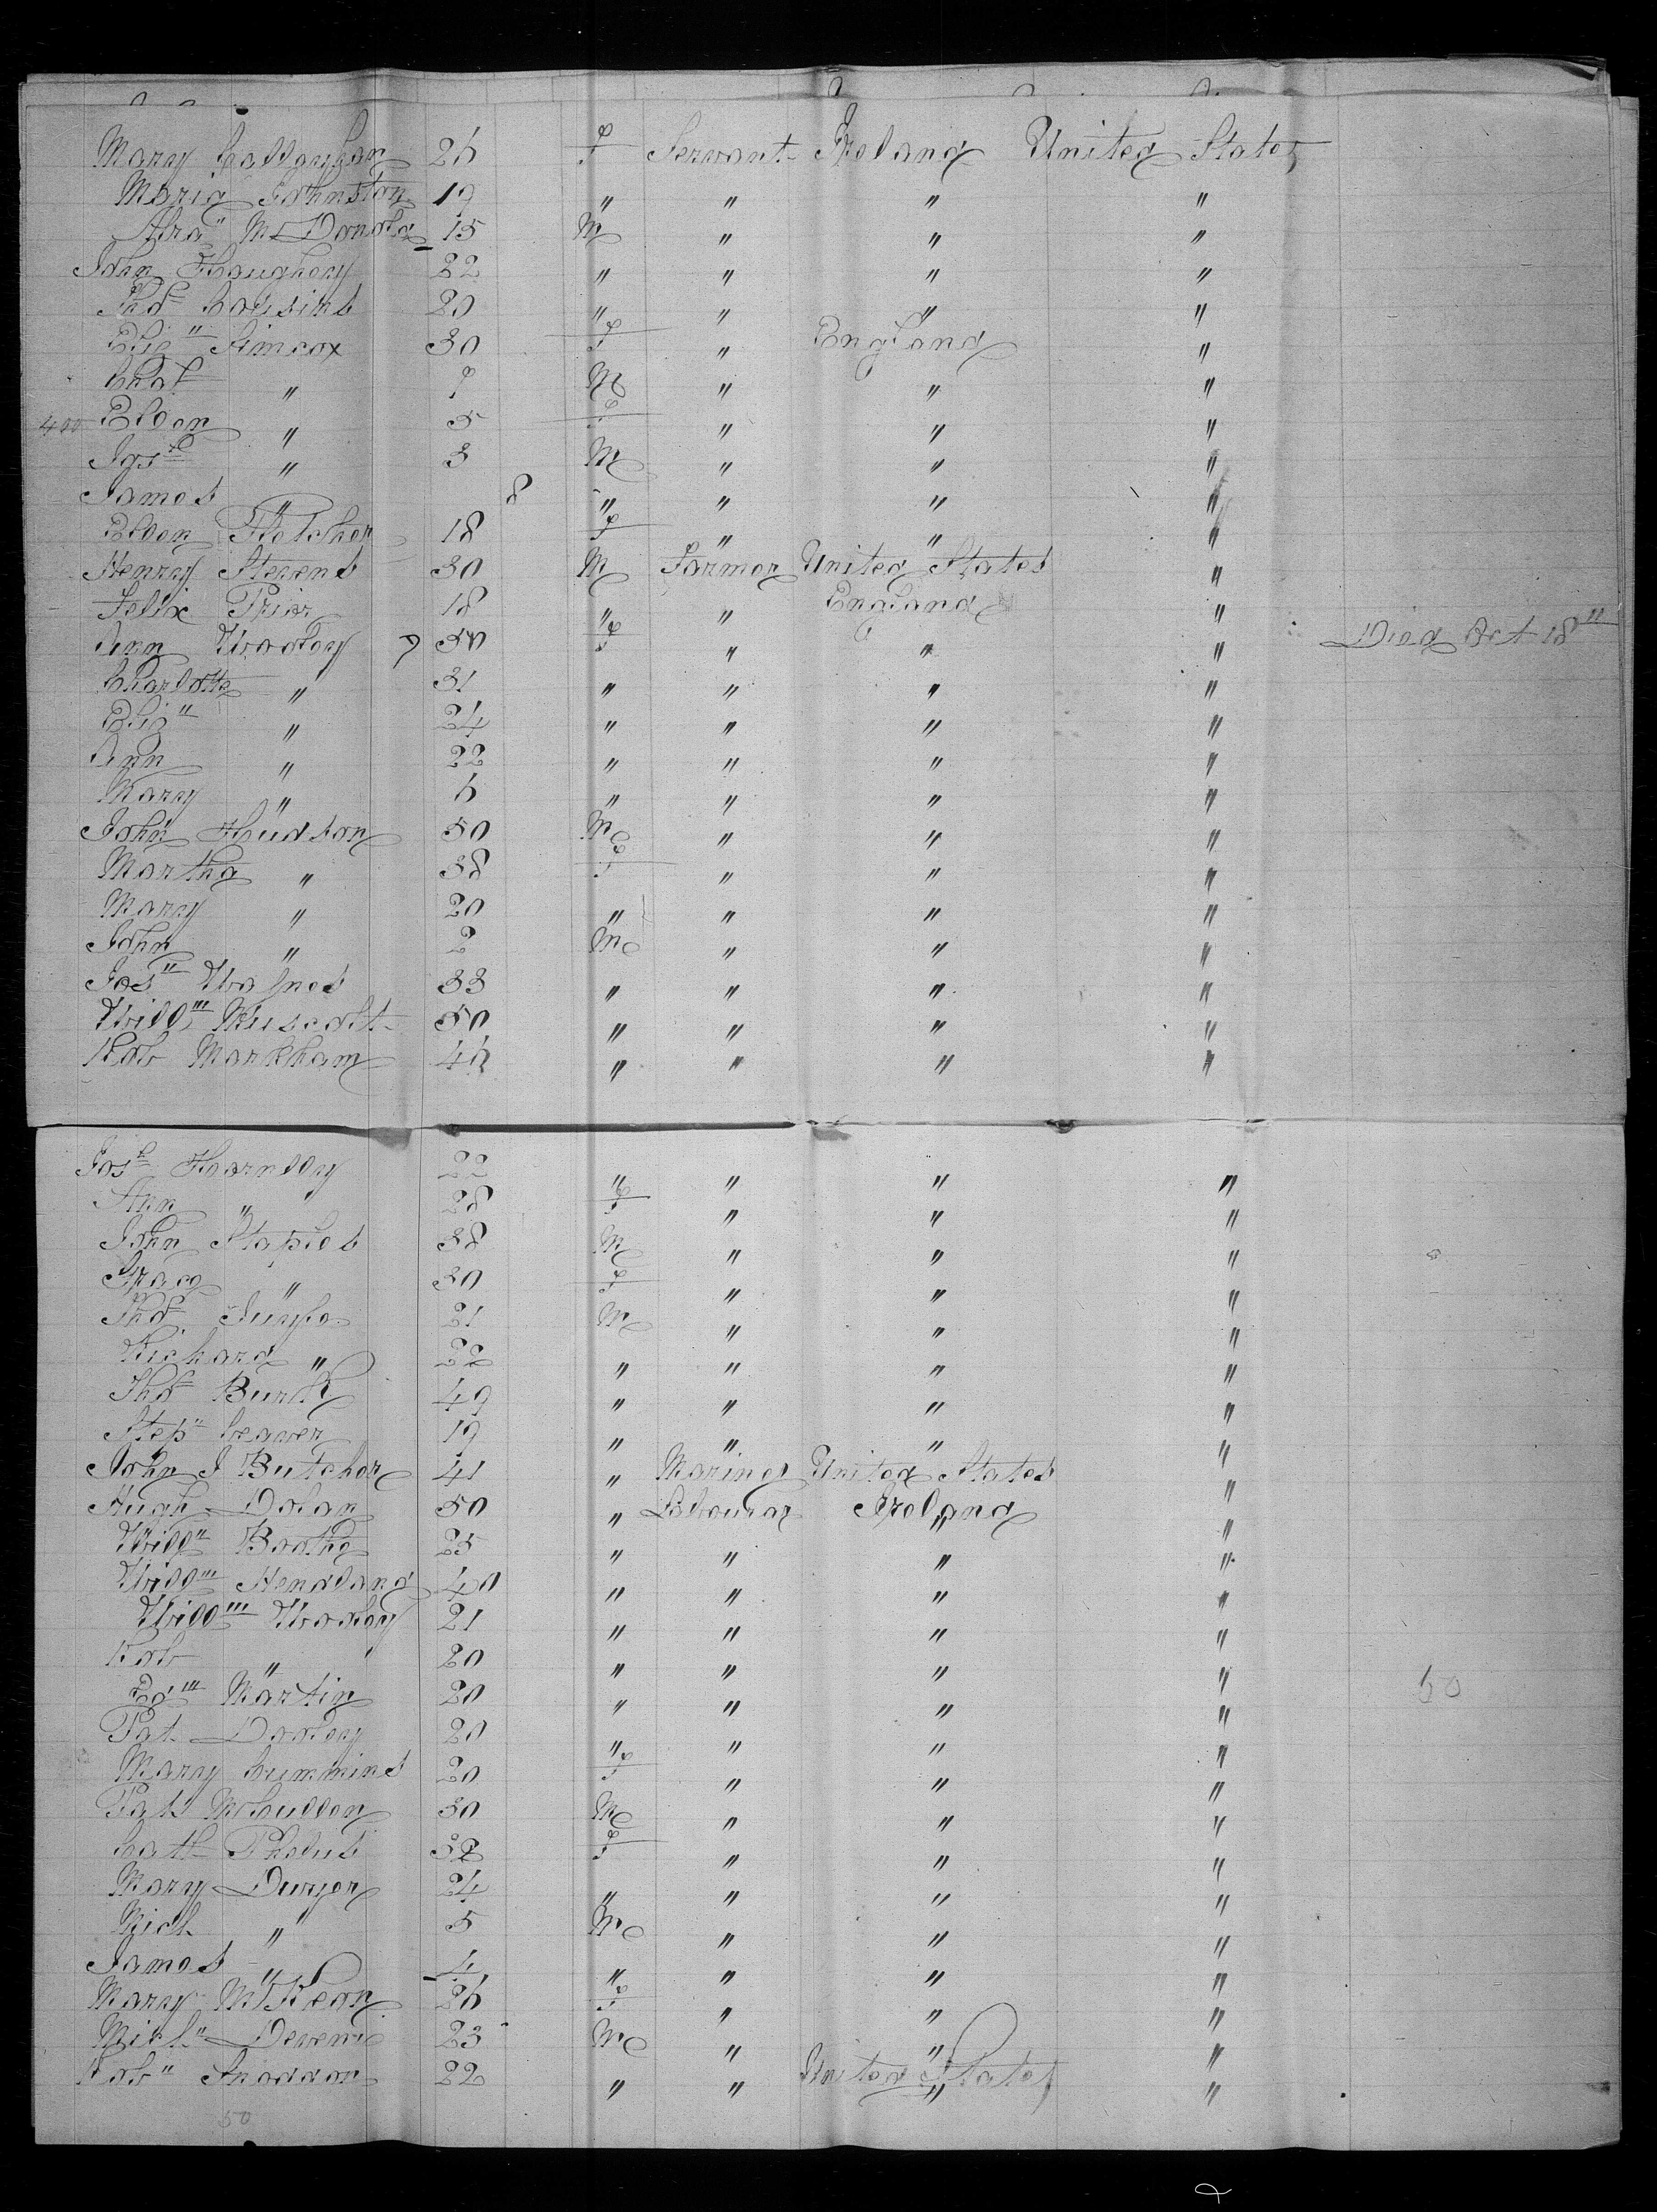 Mary Callaghan 26 f Servant Ireland United States
Maria Johnston 19 " " " "
McDonald 15 M " " "
John Haughey 22 " " " "
Thos Cousins 20 " " " "
Eliz" Simcox 30 f " England "
Chas " 7 M " " "
400 Ellen " 5 f " " "
" 3 M " " "
James " 8 " " " "
Ellen Fletcher 18 f " " "
Henry Stevens 30 M Farmer United States "
Felix Prior 18 " " England "
Ann Wooley 50 f " " " Died Oct 18"
Charlotte " 31 " " " "
Eliz" " 24 " " " "
Ann " 22 " " " "
Mary " 6 " " " "
John Hudson 50 M " " "
Martha " 38 f " " "
Mary " 20 " " " "
John " 2 M " " "
Jos" 33 " " " "
Will'm Muscott 50 " " " "
Rob Markham 46 " " " "
Jos'h 22 " " " "
Ann " 28 f " " "
John Staples 38 M " " "
Grace " 30 f " " "
Thos 21 M " " "
Richard " 22 " " " "
Thos Burk 49 " " " "
Step" Ceaver 19 " " " "
John J Butcher 41 " Mariner United States "
Hugh Dolan 50 " Labourer Ireland "
Will'm Boothe 25 " " " "
Will'm Hendland 40 " " " "
Will'm Wooley 21 " " " "
Rob " 20 " " " "
Ed'm Martin 20 " " " " 50
Pat Dooley 20 " " " "
Mary Cummins 20 f " " "
Pat McCullen 30 M " " "
Cath 32 f " " "
Mary Dwyer 24 " " " "
Mich " 5 M " " "
James " 4 " " " "
Mary McKean 26 f " " "
Mich" 23 M " " "
Rob" Snoddon 22 " " United States "
50